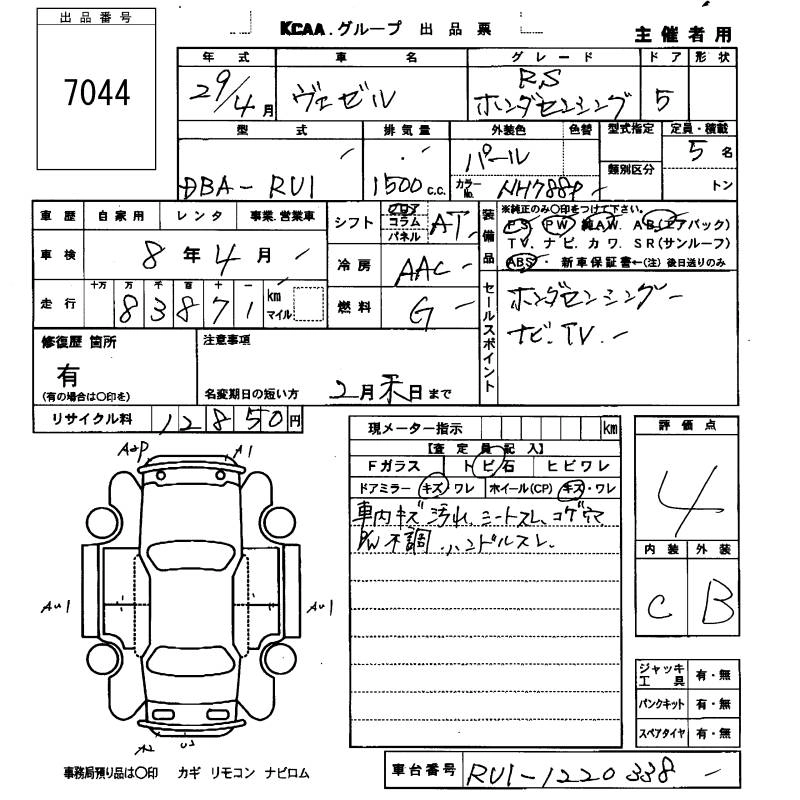 出品番号
7044
KCAA.グループ 出品票
主催者用
年式 車名 グレード ドア 形状
29/4月 ヴェゼル RS ホンダセンシング 5
型式 排気量 外装色 色替 型式指定 定員・積載
類別区分
DBA-RU1 1500c.c. パール カラーNo. NH788P 5名
トン
車歴 自家用 レンタ 事業.営業車
車検 8年4月
走行 十万 万 千 百 十 一 km マイル
83871
シフト フロア コラム パネル AT
冷房 AAC
燃料 G
装備品
※純正のみ○印をつけて下さい。
PS PW 純AW. AB(エアバック)
TV. ナビ. カワ. SR(サンルーフ)
ABS・ 新車保証書←(注)後日送りのみ
セールスポイント
ホンダセンシング
ナビ.TV.
修復歴 箇所
有
(有の場合は○印を)
注意事項
名変期日の短い方 2月末日まで
リサイクル料 12850円
現メーター指示 km
【査定員記入】
Fガラス トビ石 ヒビワレ
ドアミラー キズ・ワレ ホイール(CP) キズ・ワレ
車内キズ汚れ.シートスレ.コゲ穴
PW不調.ハンドルスレ.
評価点
4
内装 外装
C B
A2P A1
AU1 AU1
A2 U2
ジャッキ工具 有・無
パンクキット 有・無
スペアタイヤ 有・無
事務局預り品は○印 カギ リモコン ナビロム
車台番号 RU1-1220338